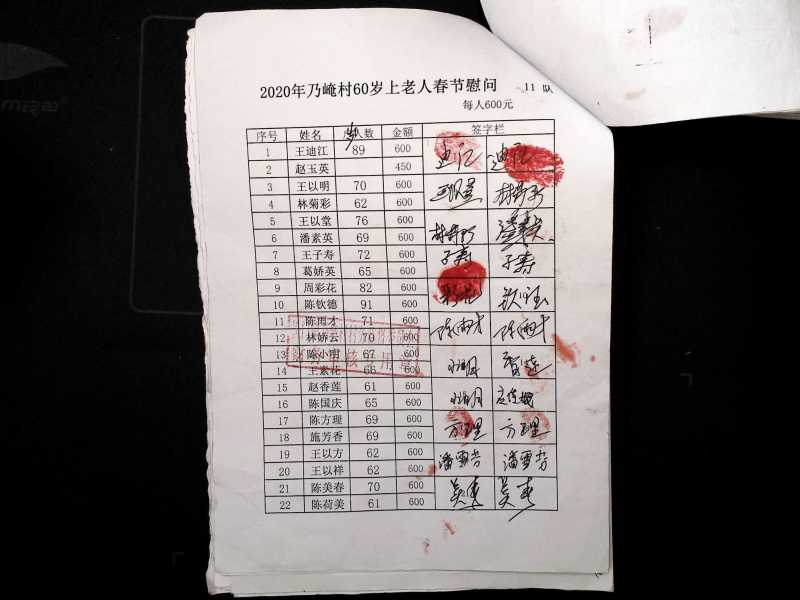 2020年乃崦村60岁上老人春节慰问 11 队
每人600元
序号 姓名 岁人数 金额 签字栏
1 王迪江 89 600 迪江 迪江
2 赵玉英 450
3 王以明 70 600
4 林菊彩 62 600 林菊彩
5 王以堂 76 600
6 潘素英 69 600 林菊彩
7 王子寿 72 600 子寿 子寿
8 葛娇英 65 600
9 周彩花 82 600 彩花
10 陈钦德 91 600
11 陈雨才 71 600 陈雨才 陈雨才
12 林娇云 70 600
13 陈小明 67 600 小明
14 王素花 66 600
15 赵香莲 61 600
16 陈国庆 65 600 小明
17 陈方理 69 600 方理 方理
18 施芳香 69 600
19 王以方 62 600 潘雪芬 潘雪芬
20 王以祥 62 600
21 陈美春 70 600 美春 美春
22 陈荷美 61 600